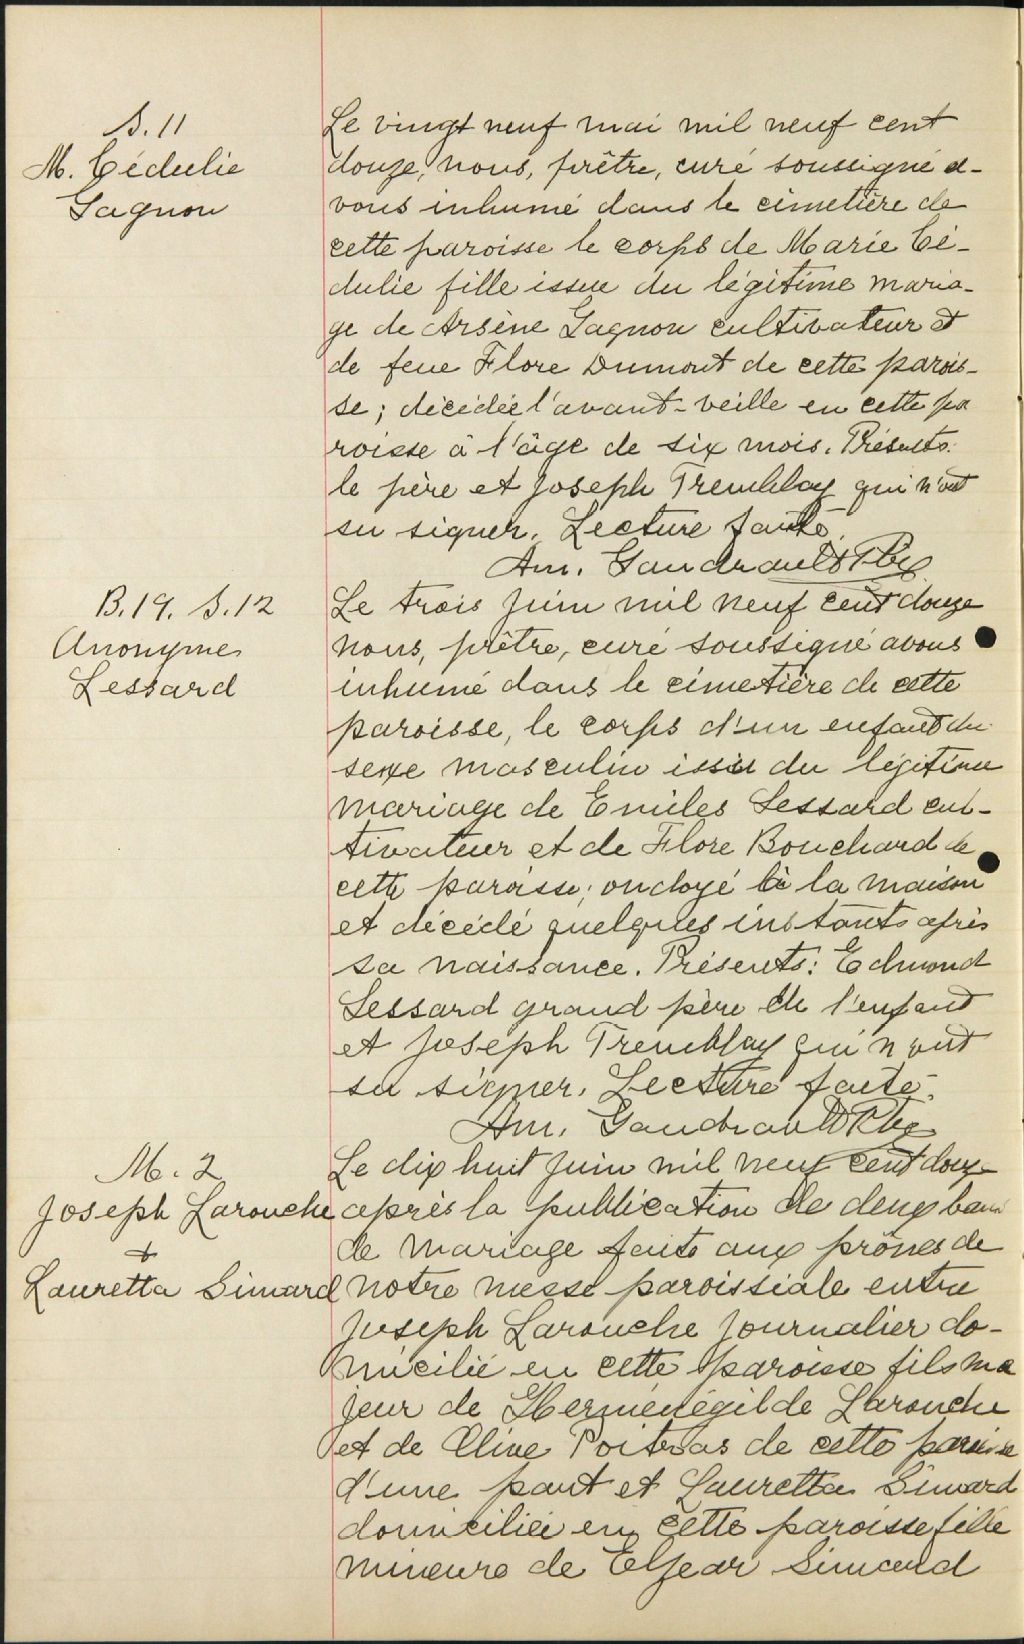 S. 11
M. Cédulie
Gagnon
Le vingt neuf mai mil neuf cent
douze, nous, prêtre, curé soussigné a-
vons inhumé dans le cimetière de
cette paroisse le corps de Marie Cé-
dulie fille issue du légitime maria-
ge de Arsène Gagnon cultivateur et
de feue Flore Dumont de cette parois-
se; décédée l'avant-veille en cette pa
roisse à l'âge de six mois. Présents:
le père et Joseph Tremblay qui n'ont
su signer. Lecture faite.
Am. Gaudreault Ptre
B. 19. S. 12
Anonyme
Lessard
Le trois juin mil neuf cent douze
nous, prêtre, curé soussigné avons
inhumé dans le cimetière de cette
paroisse, le corps d'un enfant du
sexe masculin issu du légitime
mariage de Emiles Lessard cul-
tivateur et de Flore Bouchard de
cette paroisse; ondoyé à la maison
et décédé quelques instants après
sa naissance. Présents: Edmond
Lessard grand père de l'enfant
et Joseph Tremblay qui n'ont
su signer. Lecture faite.
Am. Gaudreault Ptre
M. 2
Joseph Larouche
+
Lauretta Simard
Le dix huit juin mil neuf cent douze
après la publication de deux bans
de mariage faite aux prônes de
notre messe paroissiale entre
Joseph Larouche journalier do-
micilié en cette paroisse fils ma
jeur de Herménégilde Larouche
et de Olive Poitras de cette paroisse
d'une part et Lauretta Simard
domiciliée en cette paroisse fille
mineure de Elzear Simard